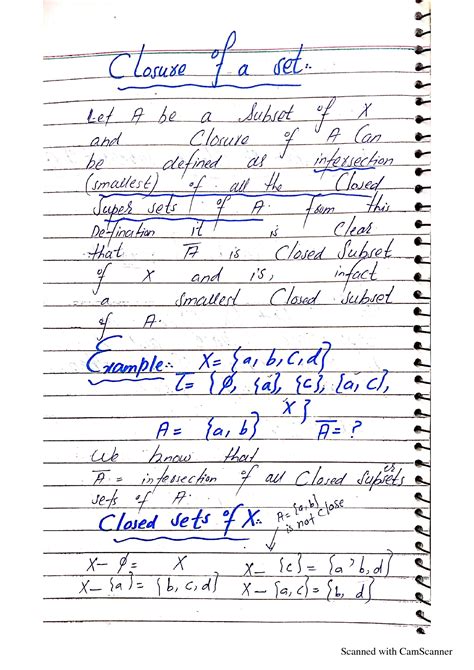 Closure of a set:.
Let A be a Subset of X
and Closure of A Can
be defined as intersection
(smallest) of all the Closed
Super sets of A. from this
Defination it is Clear
that A̅ is Closed Subset
of X and is, infact
a smallest Closed subset
of A.
Example:. X= {a, b, c, d}
τ = {ϕ, {a}, {c}, {a, c},
X}
A = {a, b} A̅ = ?
We know that
A̅ = intersection of all Closed Supersets
sets of A.
Closed sets of X:. A={a,b}
is not Close
X- ϕ = X X- {c} = {a, b, d}
X- {a} = {b, c, d} X- {a, c} = {b, d}
Scanned with CamScanner